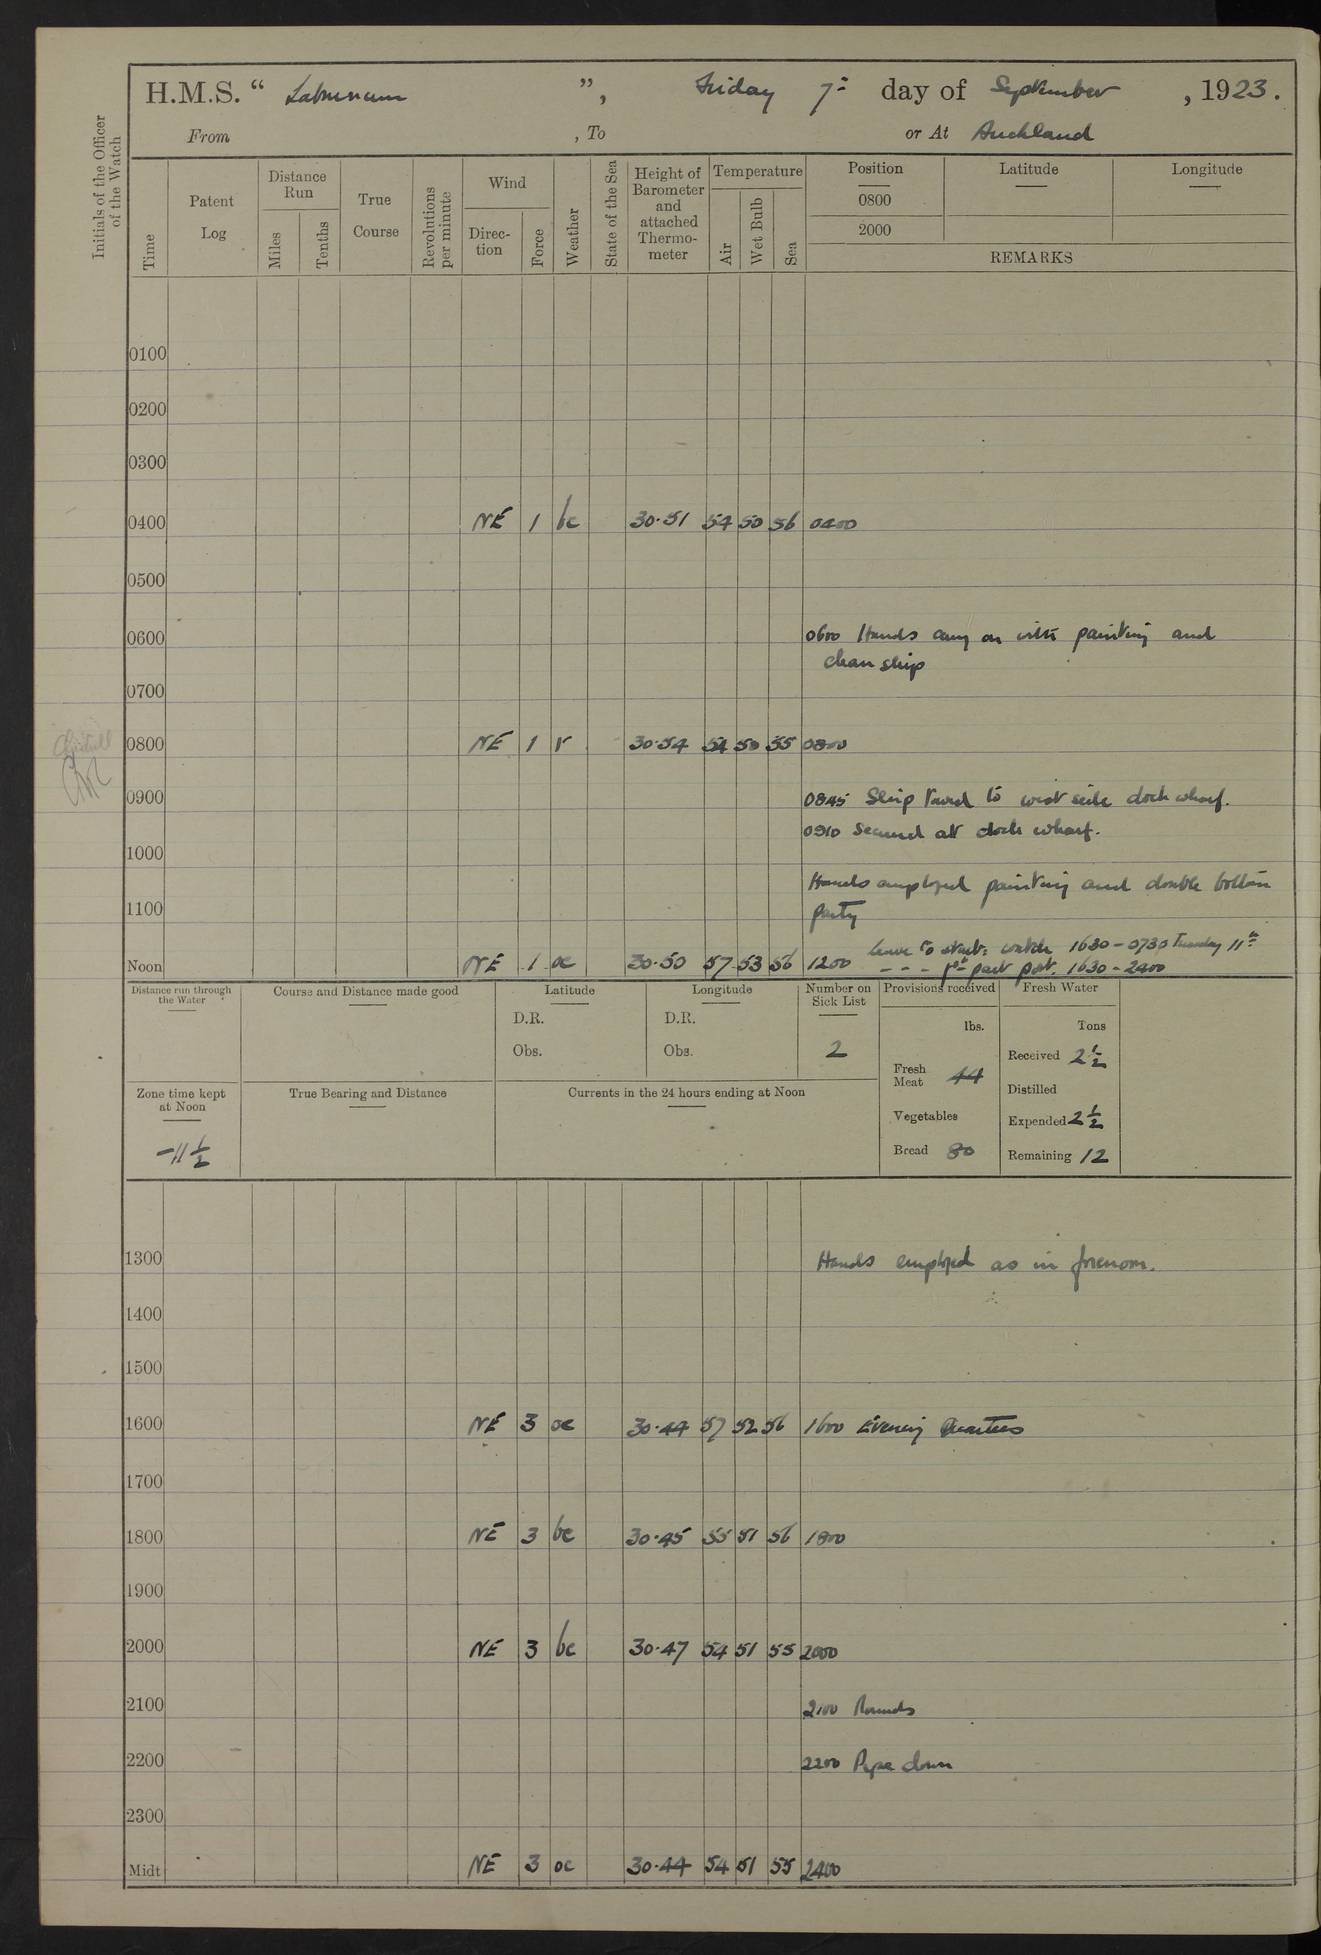 H.M.S. “ Laburnum ”, Friday 7th day of September, 1923.
From , To or At Auckland
Initials of the Officer of the Watch
Time
Patent Log
Distance Run
Miles
Tenths
True Course
Revolutions per minute
Wind
Direction
Force
Weather
State of the Sea
Height of Barometer and attached Thermometer
Temperature
Air
Wet Bulb
Sea
Position
0800
2000
Latitude
Longitude
REMARKS
0100
0200
0300
0400 NE 1 bc 30.51 54 50 56 0400
0500
0600 0600 Hands carry on with painting and
clean ship
0700
0800 NE 1 r 30.54 54 50 55 0800
0900 0845 Ship towed to west side dock wharf.
0910 Secured at dock wharf.
1000
Hands employed painting and double bottom
1100 party
Leave to starb: watch 1630 - 0730 Tuesday 11th
Noon NE 1 oc 30.50 57 53 56 1200 - - - 1st part port. 1630 - 2400
Distance run through the Water
Course and Distance made good
Latitude
D.R.
Obs.
Longitude
D.R.
Obs.
Number on Sick List
2
Provisions received
lbs.
Fresh Meat 44
Vegetables
Bread 80
Fresh Water
Tons
Received 2½
Distilled
Expended 2½
Remaining 12
Zone time kept at Noon
-11½
True Bearing and Distance
Currents in the 24 hours ending at Noon
1300 Hands employed as in forenoon.
1400
1500
1600 NE 3 oc 30.44 57 52 56 1600 Evening Quarters
1700
1800 NE 3 bc 30.45 55 51 56 1800
1900
2000 NE 3 bc 30.47 54 51 55 2000
2100 2100 Rounds
2200 2200 Pipe down
2300
Midt NE 3 oc 30.44 54 51 55 2400